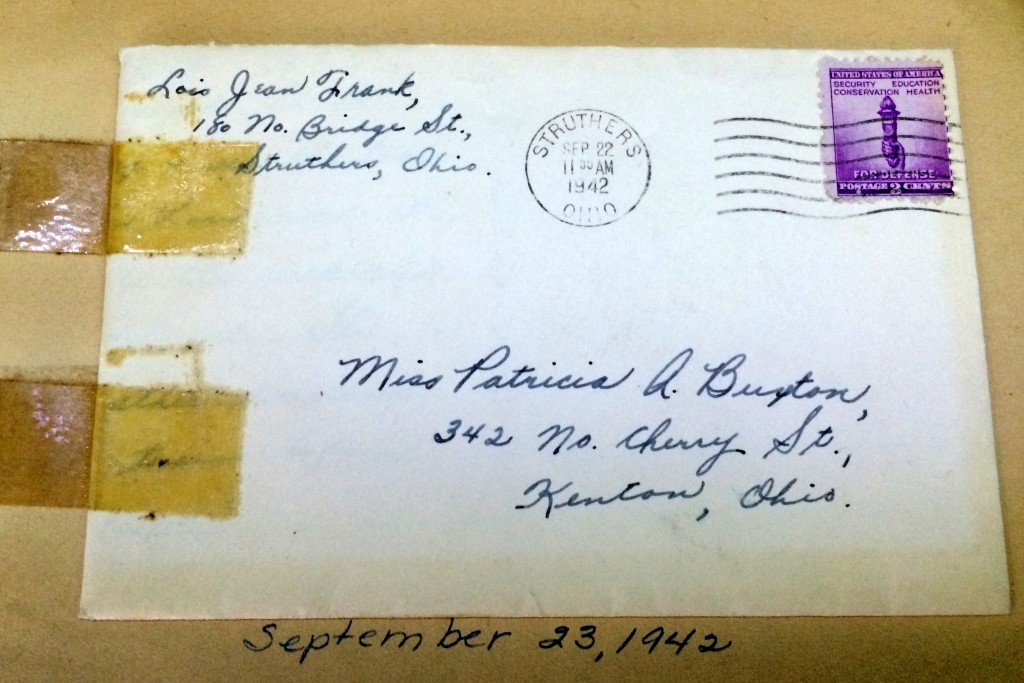 Lois Jean Frank,
180 No. Bridge St.,
Struthers, Ohio.
STRUTHERS
SEP 22
11 30 AM
1942
OHIO
UNITED STATES OF AMERICA
SECURITY EDUCATION
CONSERVATION HEALTH
FOR DEFENSE
POSTAGE 3 CENTS
Miss Patricia A. Buxton,
342 No. Cherry St.,
Kenton, Ohio.
September 23, 1942